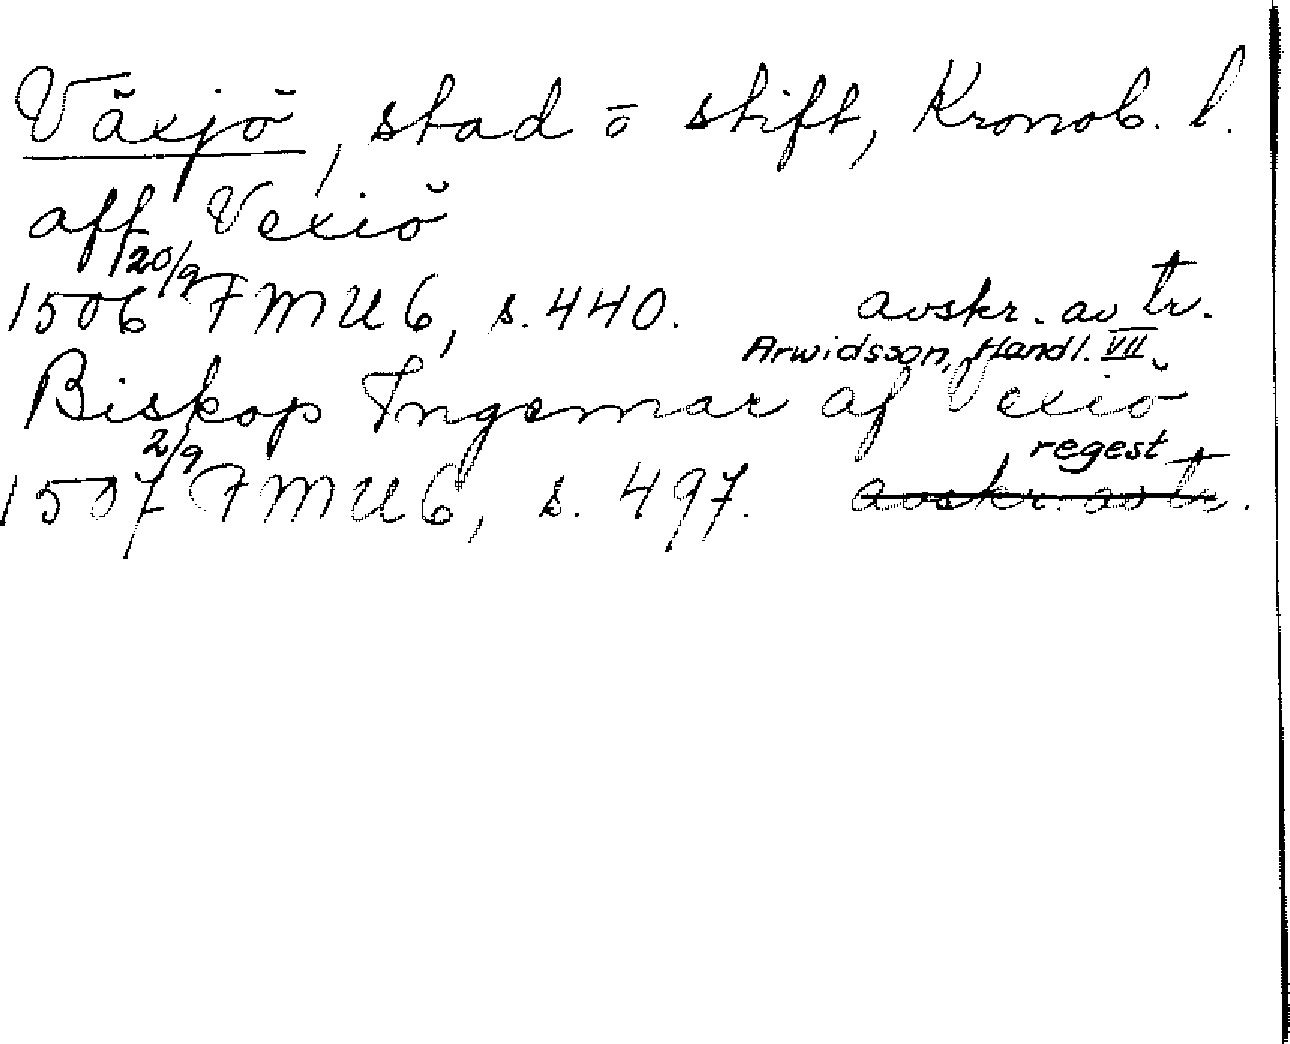 Växjö, stad o stift, Kronob. l.
aff Vexiö
1506 20/9 FMU 6, s. 440. avskr. av tr.
Arwidsson, Handl. VII.
Biskop Ingemar af Vexiö
1507 2/9 FMU 6, s. 497. regest
avskr. av tr.